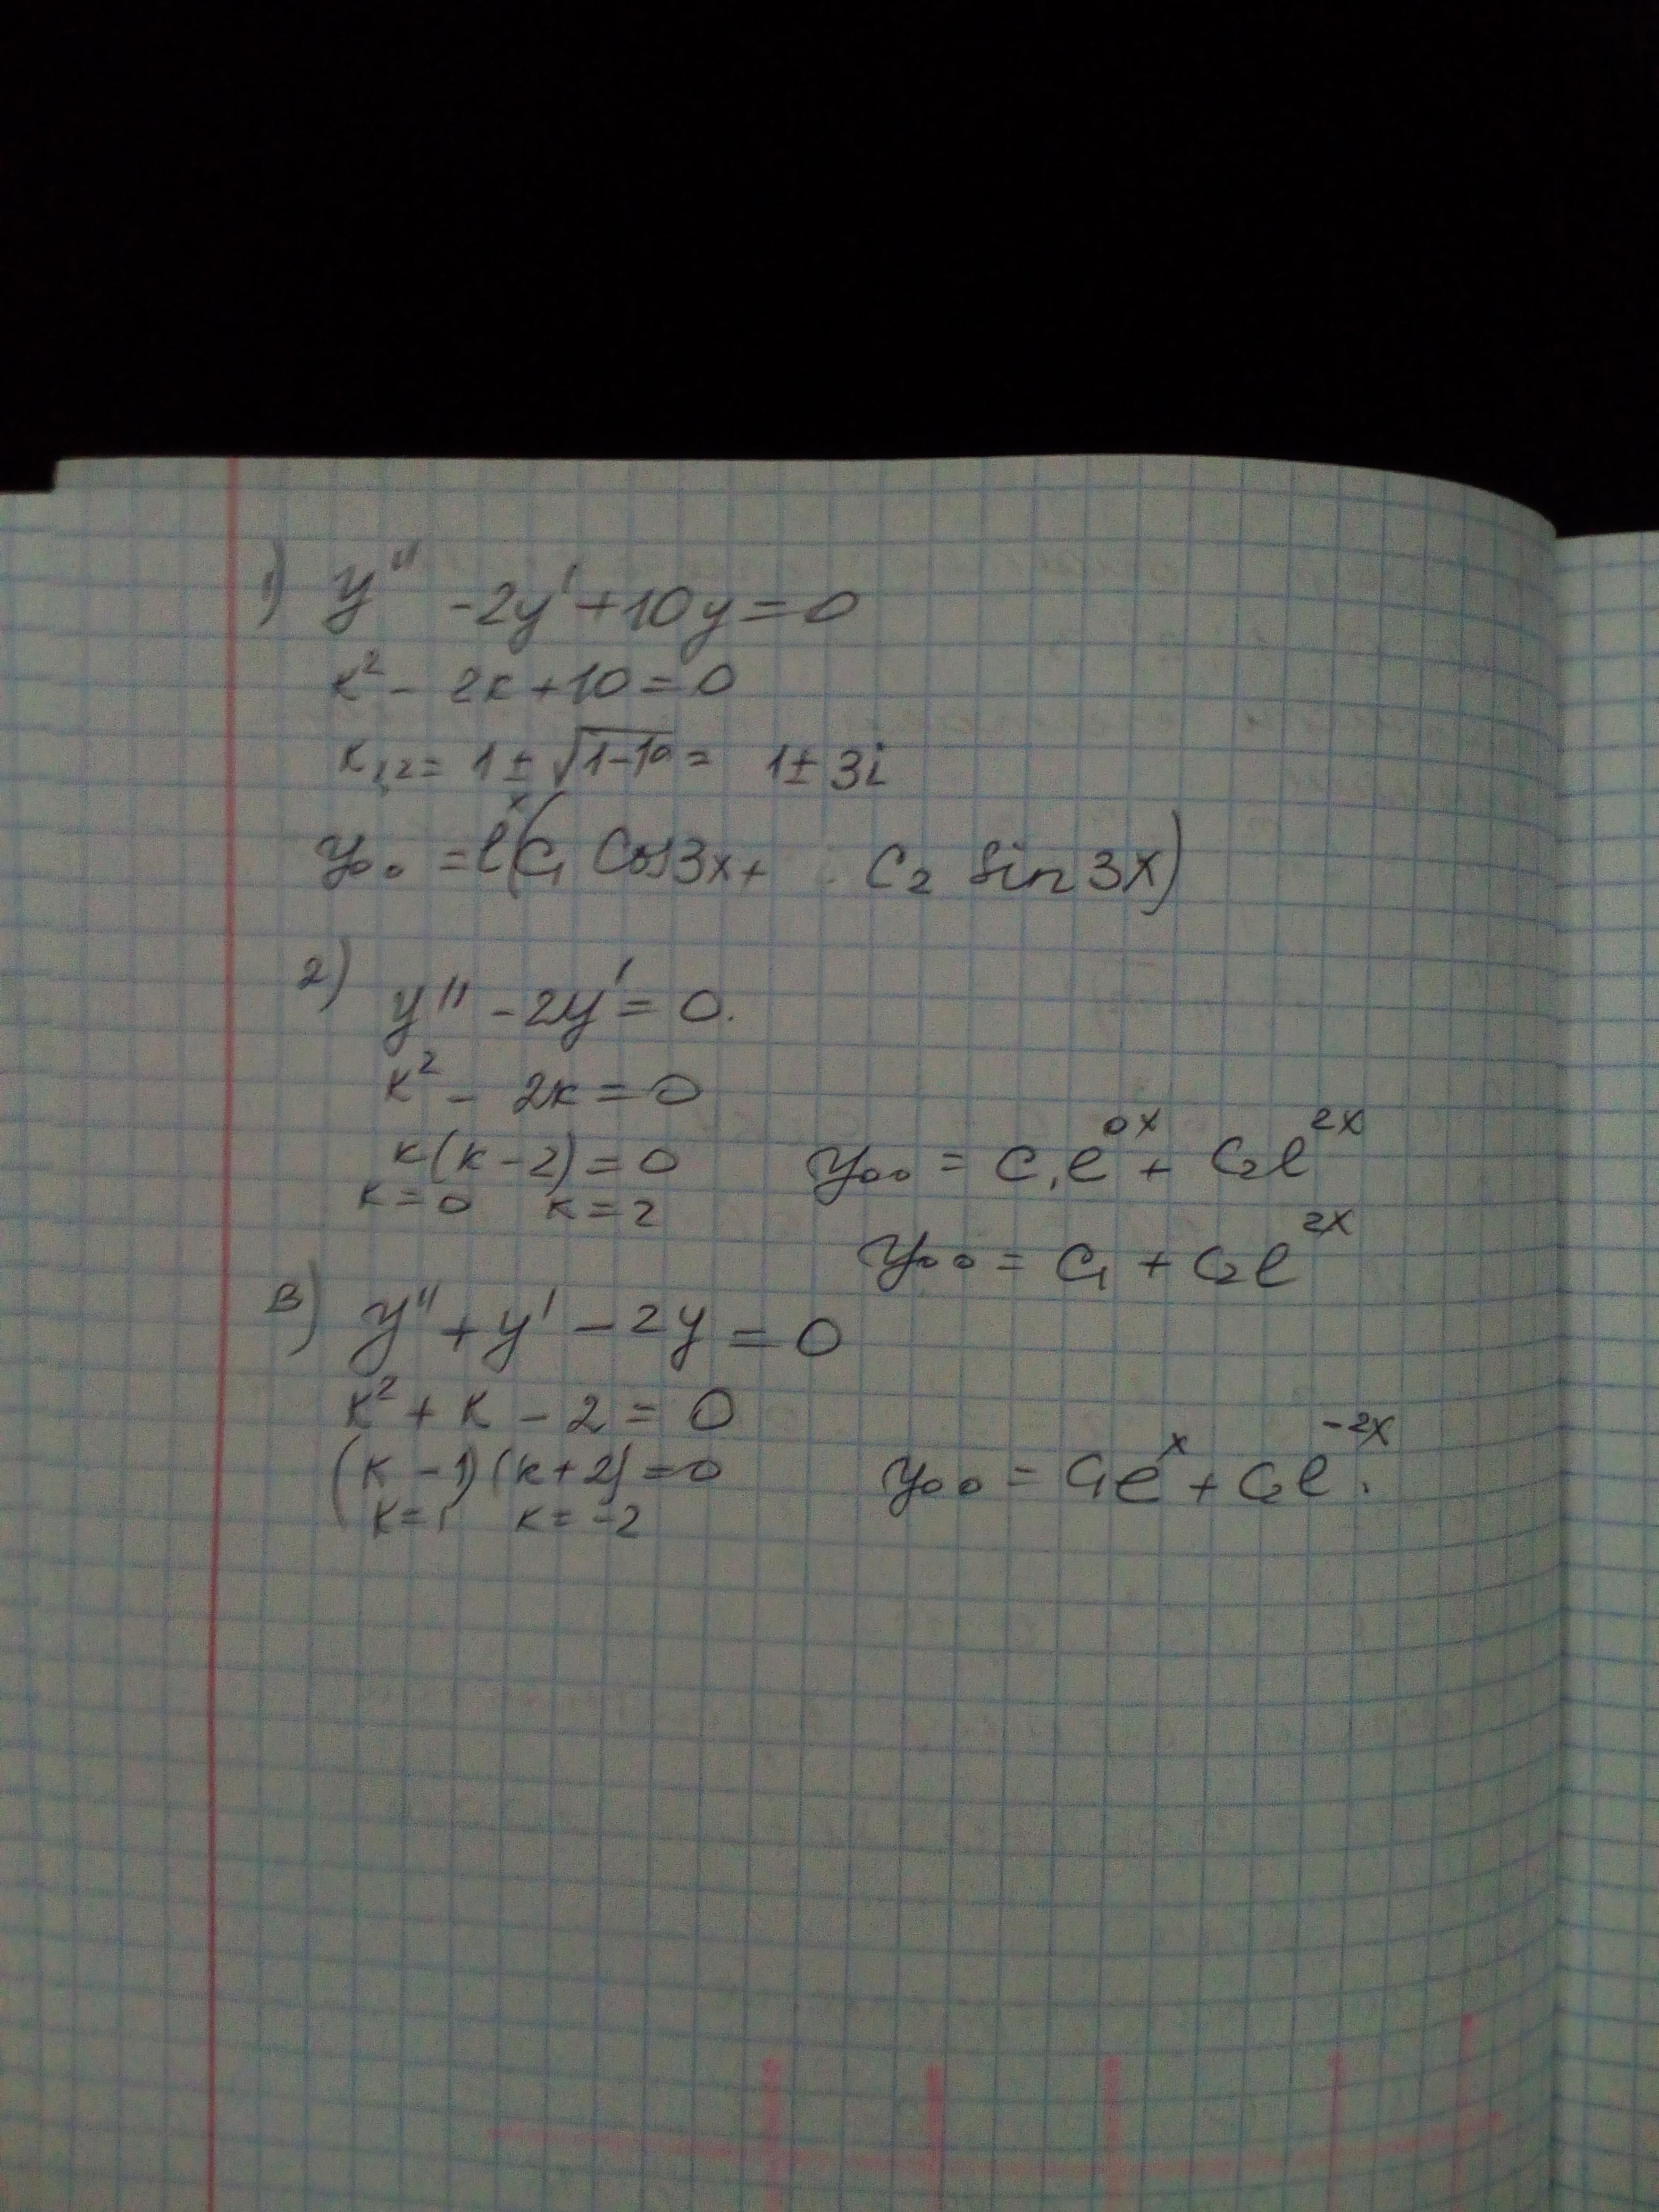 1) y'' - 2y' + 10y = 0
к² - 2к + 10 = 0
к₁,₂ = 1 ± √(1-10) = 1 ± 3i
yₒₒ = eˣ(C₁ Cos3x + C₂ Sin3x)
2) y'' - 2y' = 0.
к² - 2к = 0
к(к-2) = 0
к=0 к=2
yₒₒ = C₁e⁰ˣ + C₂e²ˣ
yₒₒ = C₁ + C₂e²ˣ
в) y'' + y' - 2y = 0
к² + к - 2 = 0
(к-1)(к+2) = 0
к=1 к=-2
yₒₒ = C₁eˣ + C₂e⁻²ˣ.